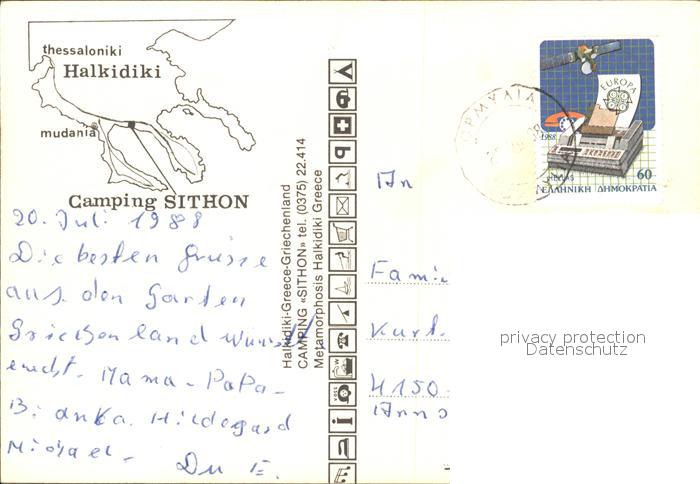 thessaloniki
Halkidiki
mudania
Camping SITHON
20. Juli 1988
Die besten Grüsse
aus den Garten
Griechenland wünscht
euch. Mama - PaPa -
Bianka. Hildegard
Michael -
Halkidiki-Greece-Griechenland
CAMPING «SITHON» tel. (0375) 22.414
Metamorphosis Halkidiki Greece
An
Fami
Kurt.
4150
EUROPA
1988
HELLAS
60
ΕΛΛΗΝΙΚΗ ΔΗΜΟΚΡΑΤΙΑ
ΟΡΜΥΛΙΑ
privacy protection
Datenschutz